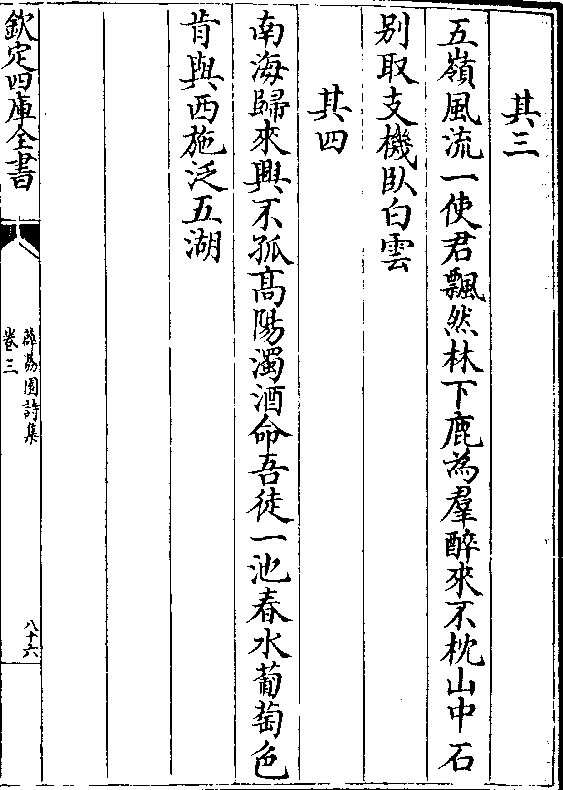 其三
五嶺風流一使君飄然林下鹿為羣醉來不枕山中石
别取支機臥白雲
其四
南海歸來興不孤髙陽濁酒命吾徒一池春水葡萄色
肯與西施泛五湖
欽定四庫全書
薜荔園詩集
卷三
八十六